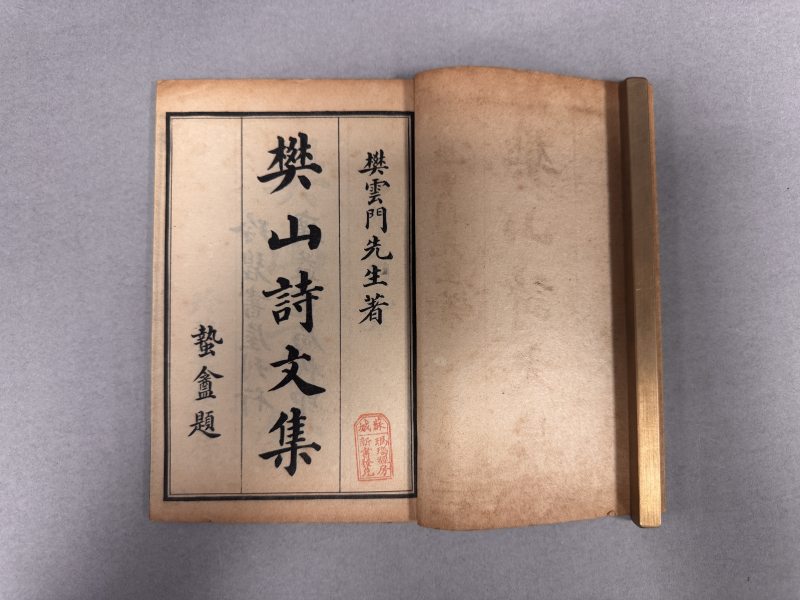 樊雲門先生著
樊山詩文集
蟄盦題
蘇城
瑪瑙經房
新書發兌